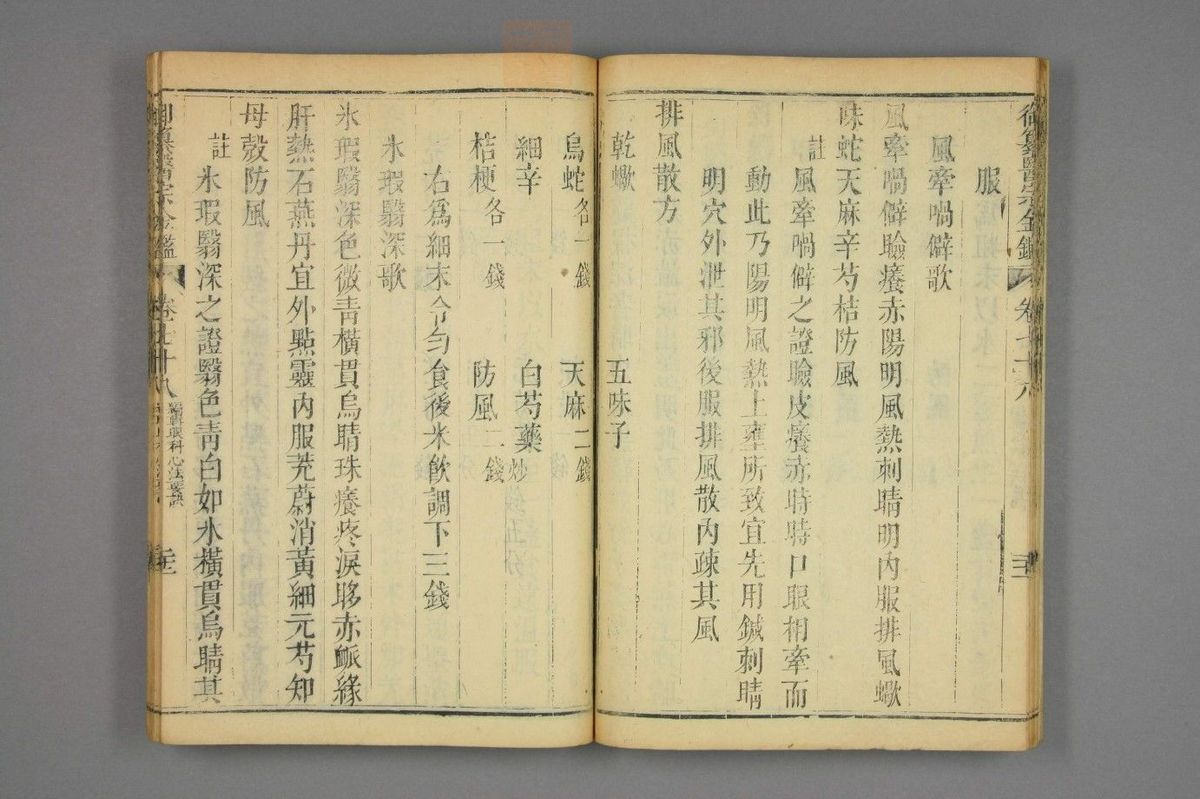 服
風牽喎僻歌
風牽喎僻瞼癢赤陽明風熱刺睛明內服排風蠍
味蛇天麻辛芍桔防風
註風牽喎僻之證瞼皮癢赤時時口眼相牽而
動此乃陽明風熱上壅所致宜先用鍼刺睛
明穴外泄其邪後服排風散內疎其風
排風散方
乾蠍 五味子
烏蛇各一錢 天麻二錢
細辛 白芍藥炒
桔梗各一錢 防風二錢
右為細末令勻食後米飲調下三錢
氷瑕翳深歌
氷瑕翳深色微青橫貫烏睛珠癢疼淚眵赤脈緣
肝熱石燕丹宜外點靈內服茺蔚消黃細元芍知
母殼防風
註氷瑕翳深之證翳色青白如氷橫貫烏睛其
御纂醫宗金鑑 卷七十八